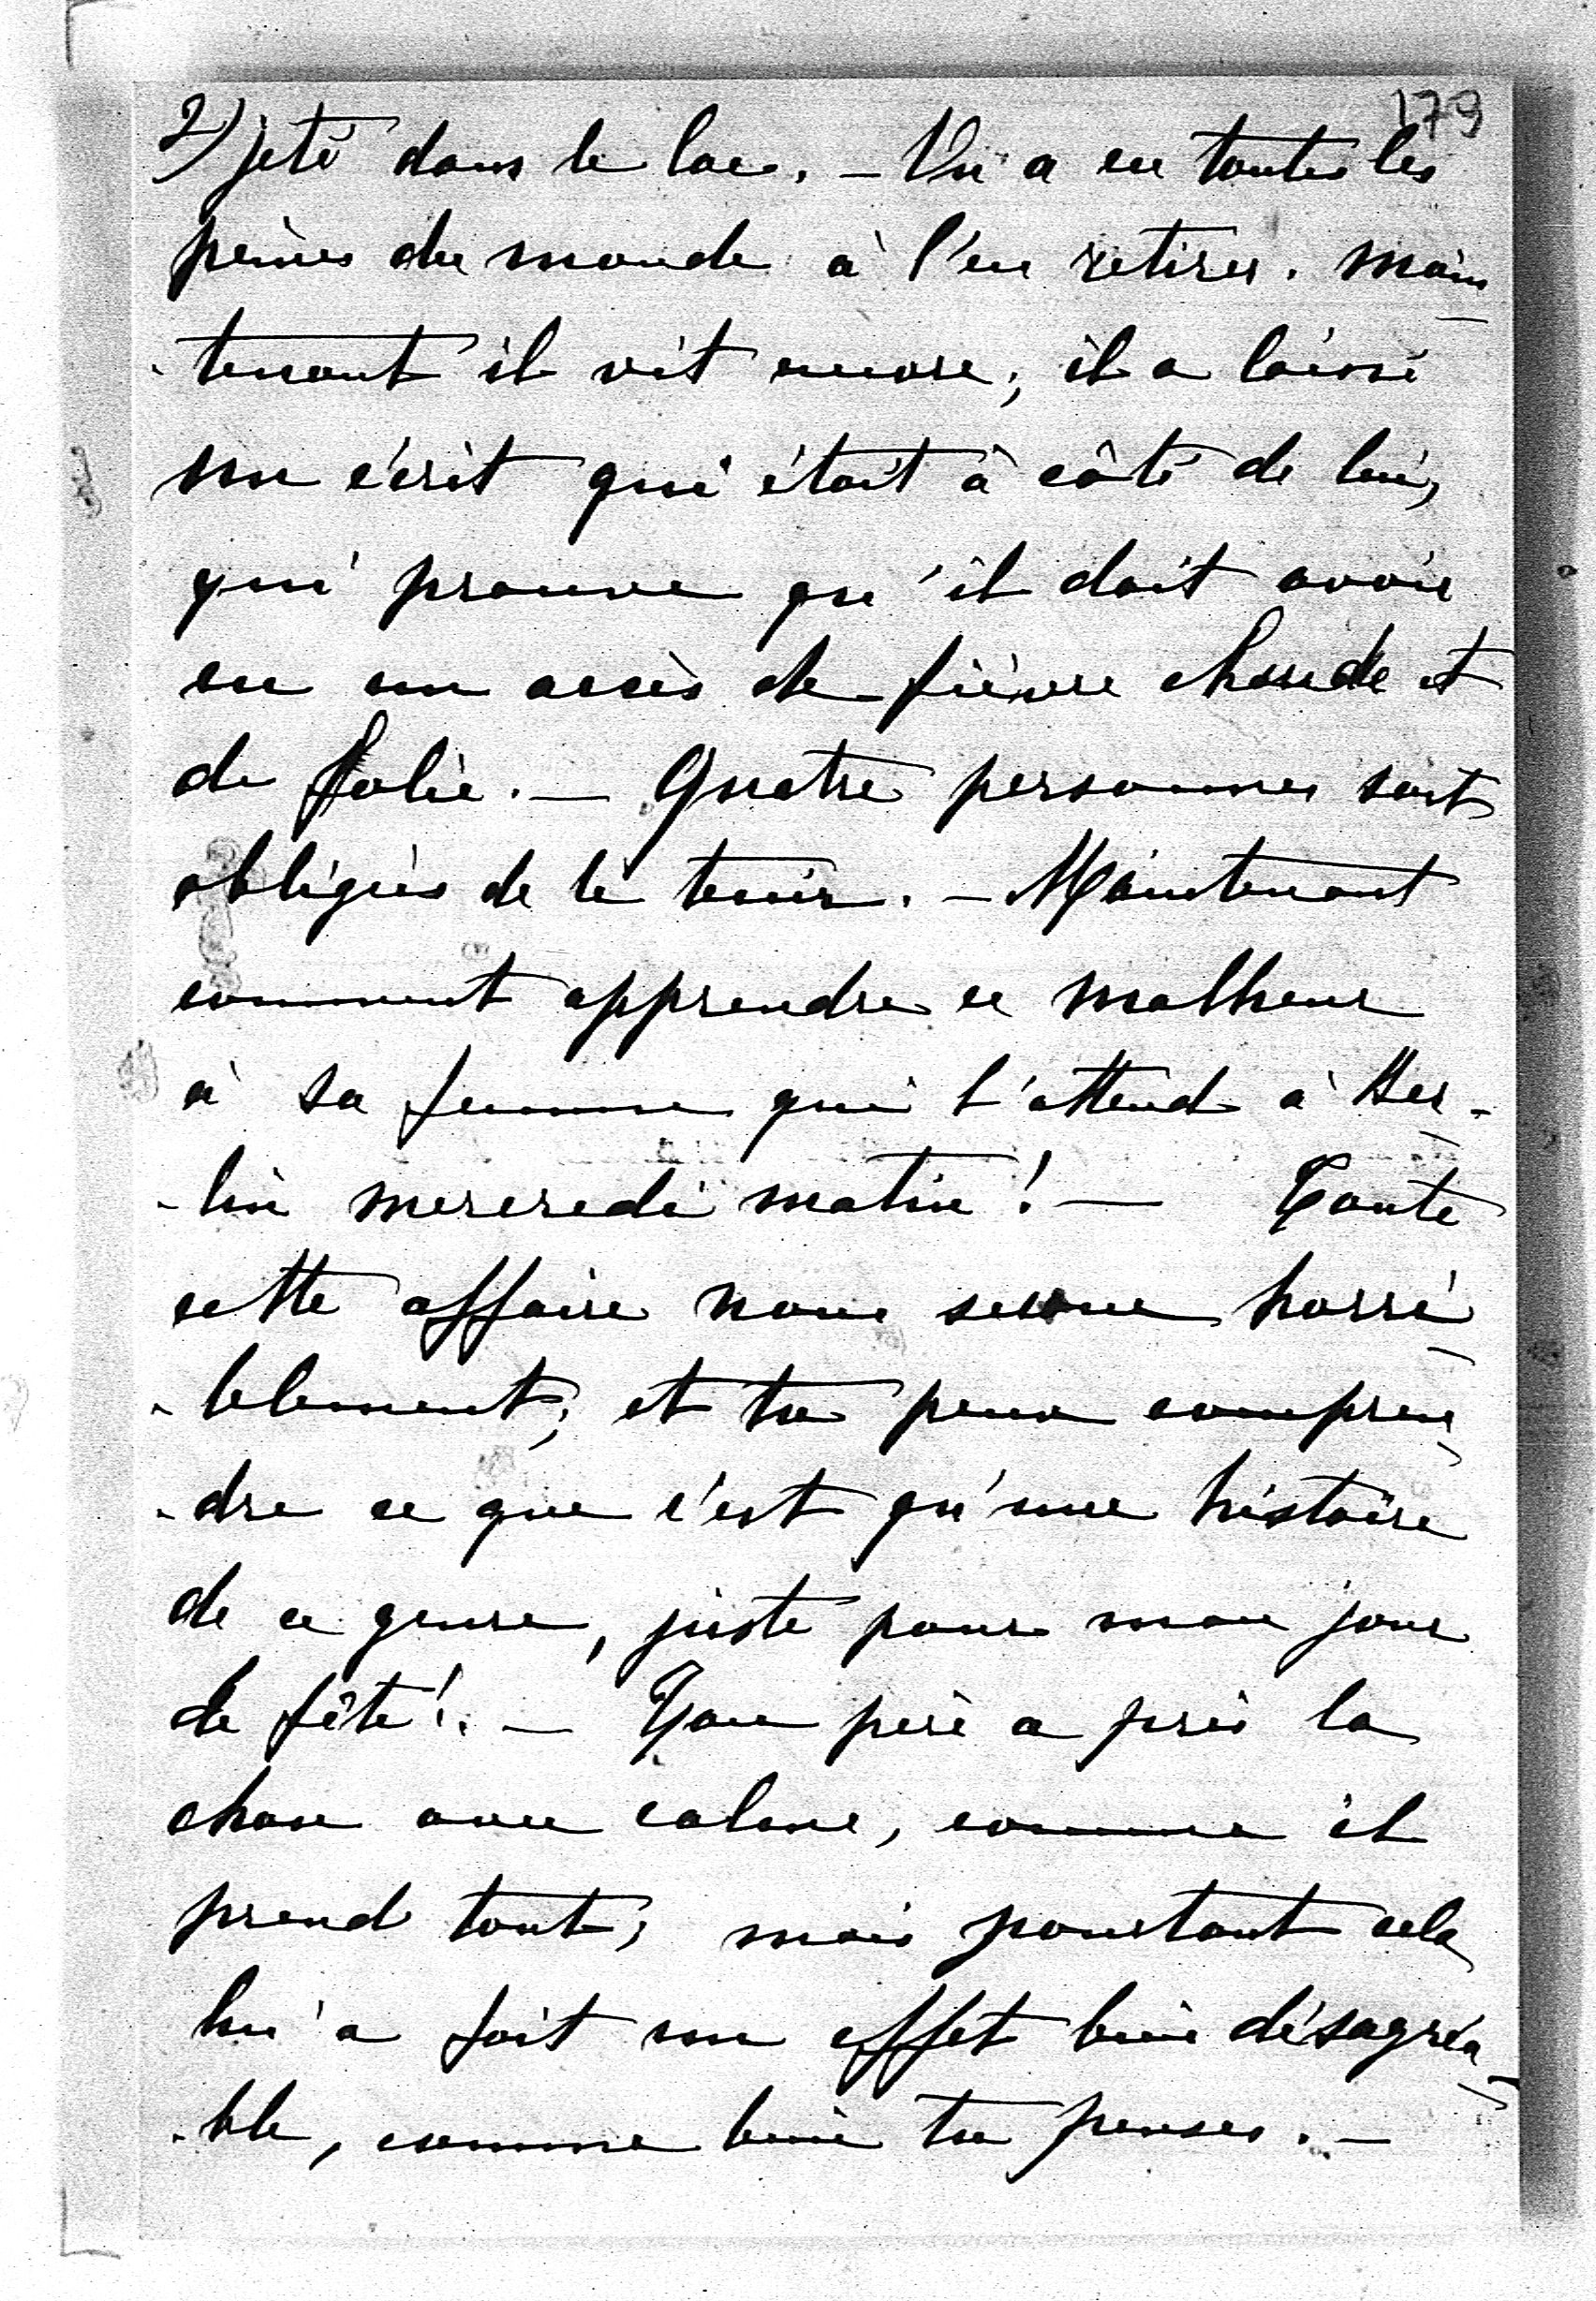 179
2) jeté dans le lac. – On a eu toutes les
peines du monde à l'en retirer. Main
-tenant il vit encore; il a laissé
un écrit qui était à côté de lui,
qui prouve qu'il doit avoir
eu un accès de fièvre chaude et
de folie. — Quatre personnes sont
obligées de le tenir. – Maintenant
comment apprendre ce malheur
à sa femme qui l'attend à Ber-
-lin mercredi matin! — Toute
cette affaire nous secoue horri
-blement; et tu peux compren
-dre ce que c'est qu'une histoire
de ce genre, juste pour mon jour
de fête!. – Ton père a pris la
chose avec calme, comme il
prend tout; mais pourtant cela
lui a fait un effet bien désagréa
-ble, comme bien tu penses. –